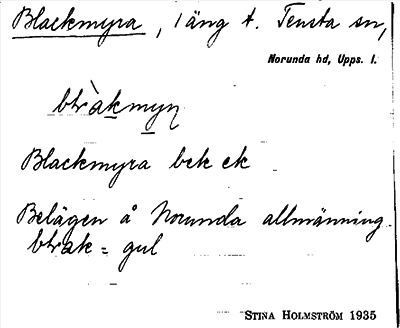 Blackmyra, 1 äng t. Tensta sn,
Norunda hd, Upps. l.
Blackmyra bek ek
Belägen å Norunda allmänning.
= gul
STINA HOLMSTRÖM 1935